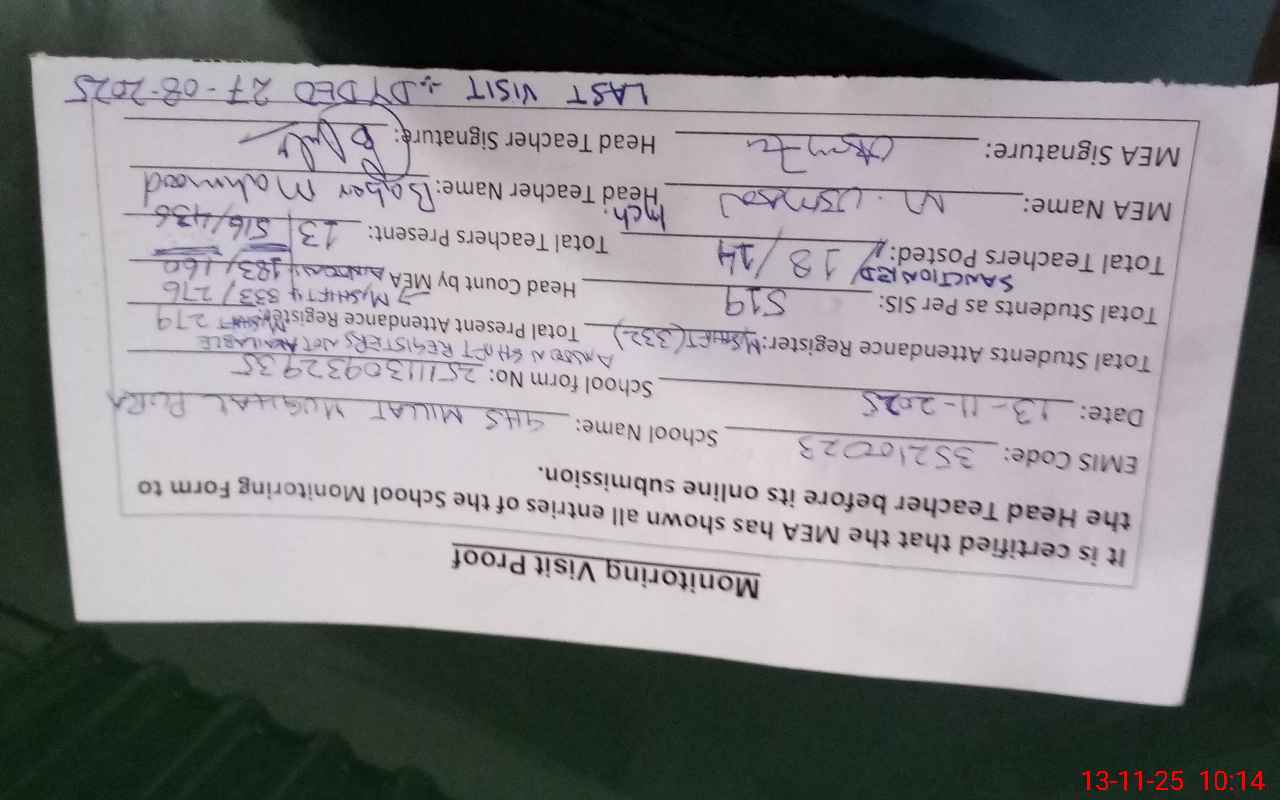 Monitoring Visit Proof
It is certified that the MEA has shown all entries of the School Monitoring Form to
the Head Teacher before its online submission.
EMIS Code: 35210023 School Name: GHS MILLAT MUGHAL PURA
Date: 13-11-2025 School form No: 25111309332935
Total Students Attendance Register: M/SHIFT (332) Total Present Attendance Register: M/SHIFT 279
REGISTERS NOT AVAILABLE
Total Students as Per SIS: 519 Head Count by MEA
M/SHIFT 333/276
183/160
SANCTIONED
Total Teachers Posted: 18/14 Total Teachers Present: 13 516/436
MEA Name: M. USMAN Head Teacher Name: Babar Mahmood
Inch:
MEA Signature: Head Teacher Signature:
LAST VISIT :- DYDEO 27-08-2025
13-11-25 10:14